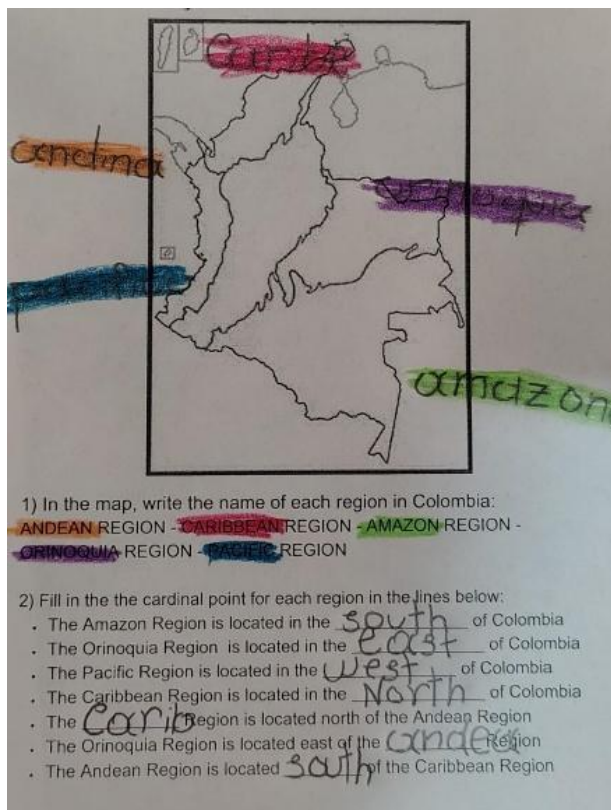 Caribe
andina
orinoquia
pacifica
amazon
1) In the map, write the name of each region in Colombia:
ANDEAN REGION - CARIBBEAN REGION - AMAZON REGION -
ORINOQUIA REGION - PACIFIC REGION
2) Fill in the the cardinal point for each region in the lines below:
. The Amazon Region is located in the south of Colombia
. The Orinoquia Region is located in the east of Colombia
. The Pacific Region is located in the West of Colombia
. The Caribbean Region is located in the North of Colombia
. The Carib Region is located north of the Andean Region
. The Orinoquia Region is located east of the andea Region
. The Andean Region is located south of the Caribbean Region